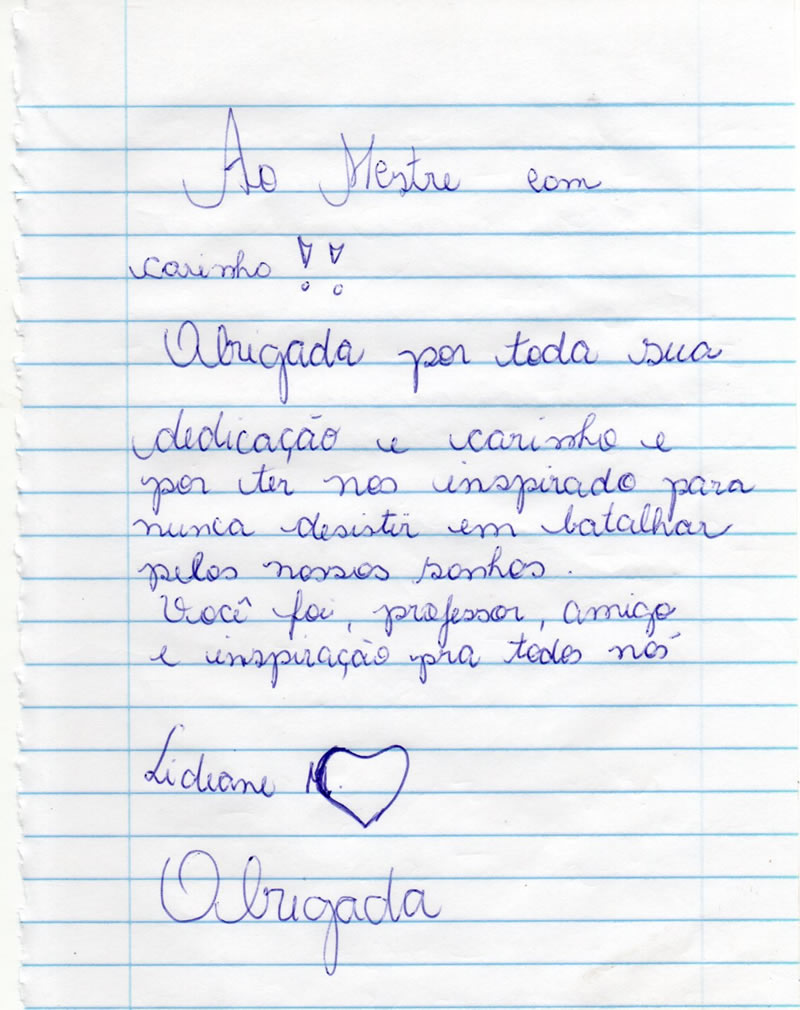 Ao Mestre com
carinho !!
Obrigada por toda sua
dedicação e carinho e
por ter nos inspirado para
nunca desistir em batalhar
pelos nossos sonhos.
Você foi, professor, amigo
e inspiração pra todos nós
Lideane M.
Obrigada